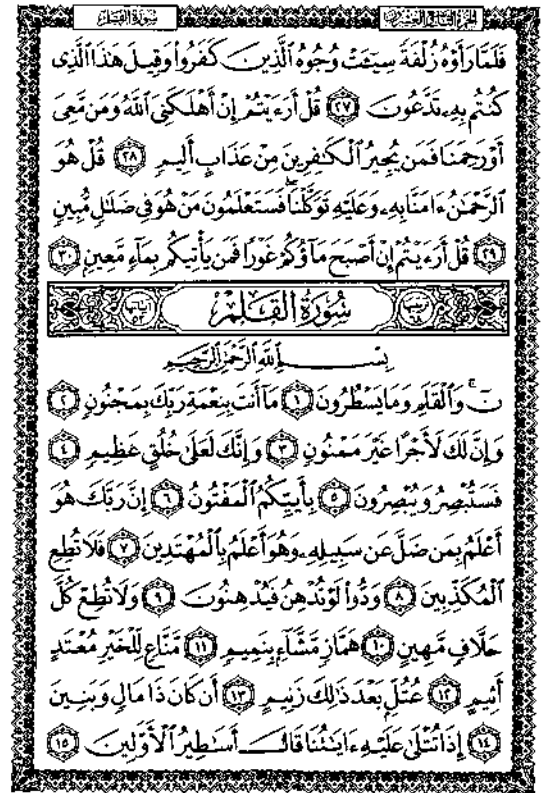 سُورَةُ القَلَمِ الجُزْءُ التَّاسِعُ وَالعِشْرُونَ
فَلَمَّا رَأَوْهُ زُلْفَةً سِيٓـَٔتْ وُجُوهُ ٱلَّذِينَ كَفَرُواْ وَقِيلَ هَٰذَا ٱلَّذِى
كُنتُم بِهِۦ تَدَّعُونَ ٢٧ قُلْ أَرَءَيْتُمْ إِنْ أَهْلَكَنِىَ ٱللَّهُ وَمَن مَّعِىَ
أَوْ رَحِمَنَا فَمَن يُجِيرُ ٱلْكَٰفِرِينَ مِنْ عَذَابٍ أَلِيمٍ ٢٨ قُلْ هُوَ
ٱلرَّحْمَٰنُ ءَامَنَّا بِهِۦ وَعَلَيْهِ تَوَكَّلْنَا ۖ فَسَتَعْلَمُونَ مَنْ هُوَ فِى ضَلَٰلٍ مُّبِينٍ
٢٩ قُلْ أَرَءَيْتُمْ إِنْ أَصْبَحَ مَآؤُكُمْ غَوْرًا فَمَن يَأْتِيكُم بِمَآءٍ مَّعِينٍ ٣٠
ترتيبها ٦٨ سُورَةُ القَلَمِ آياتها ٥٢
بِسْمِ ٱللَّهِ ٱلرَّحْمَٰنِ ٱلرَّحِيمِ
نٓ ۚ وَٱلْقَلَمِ وَمَا يَسْطُرُونَ ١ مَآ أَنتَ بِنِعْمَةِ رَبِّكَ بِمَجْنُونٍ ٢
وَإِنَّ لَكَ لَأَجْرًا غَيْرَ مَمْنُونٍ ٣ وَإِنَّكَ لَعَلَىٰ خُلُقٍ عَظِيمٍ ٤
فَسَتُبْصِرُ وَيُبْصِرُونَ ٥ بِأَييِّكُمُ ٱلْمَفْتُونُ ٦ إِنَّ رَبَّكَ هُوَ
أَعْلَمُ بِمَن ضَلَّ عَن سَبِيلِهِۦ وَهُوَ أَعْلَمُ بِٱلْمُهْتَدِينَ ٧ فَلَا تُطِعِ
ٱلْمُكَذِّبِينَ ٨ وَدُّواْ لَوْ تُدْهِنُ فَيُدْهِنُونَ ٩ وَلَا تُطِعْ كُلَّ
حَلَّافٍ مَّهِينٍ ١٠ هَمَّازٍ مَّشَّآءٍۭ بِنَمِيمٍ ١١ مَّنَّاعٍ لِّلْخَيْرِ مُعْتَدٍ
أَثِيمٍ ١٢ عُتُلٍّۭ بَعْدَ ذَٰلِكَ زَنِيمٍ ١٣ أَن كَانَ ذَا مَالٍ وَبَنِينَ
١٤ إِذَا تُتْلَىٰ عَلَيْهِ ءَايَٰتُنَا قَالَ أَسَٰطِيرُ ٱلْأَوَّلِينَ ١٥